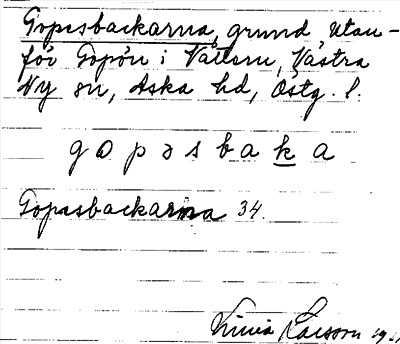 Gopåsbackarna, grund utan-
för Gopön i Vättern, Västra
Ny sn, Aska hd, Östg. l.
g o p ə s b a k a
Gopåsbackarna 34.
Linnea Larsson